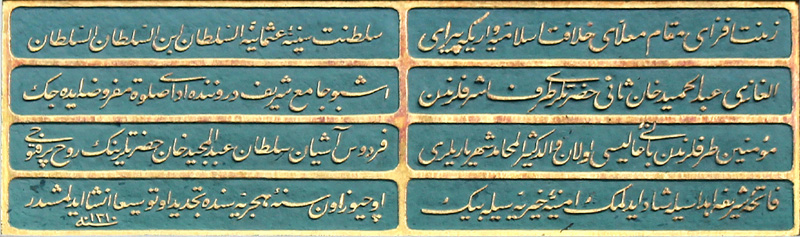 زینت افزای مقام معلای خلافت اسلامیه و اریکه پیرای
سلطنت سنیهٔ عثمانیه السلطان ابن السلطان السلطان
الغازی عبدالحمید خان ثانی حضرتلری طرف اشرفلرندن
اشبو جامع شریف درونده ادای صلوة مفروضه ایده جك
مؤمنین طرفلرندن بانئ عالیسی اولان والد کثیر المحامد شهریاریلری
فردوس آشیان سلطان عبدالمجید خان حضرتلرینك روح پرفتوحی
فاتحهٔ شریفه اهداسیله شاد ایدلمك امنیهٔ خیریه سیله بیك
اوچیوز اون سنهٔ هجریه سنده تجدیدا و توسیعا انشا ایدلمشدر
سنه ١٣١٠